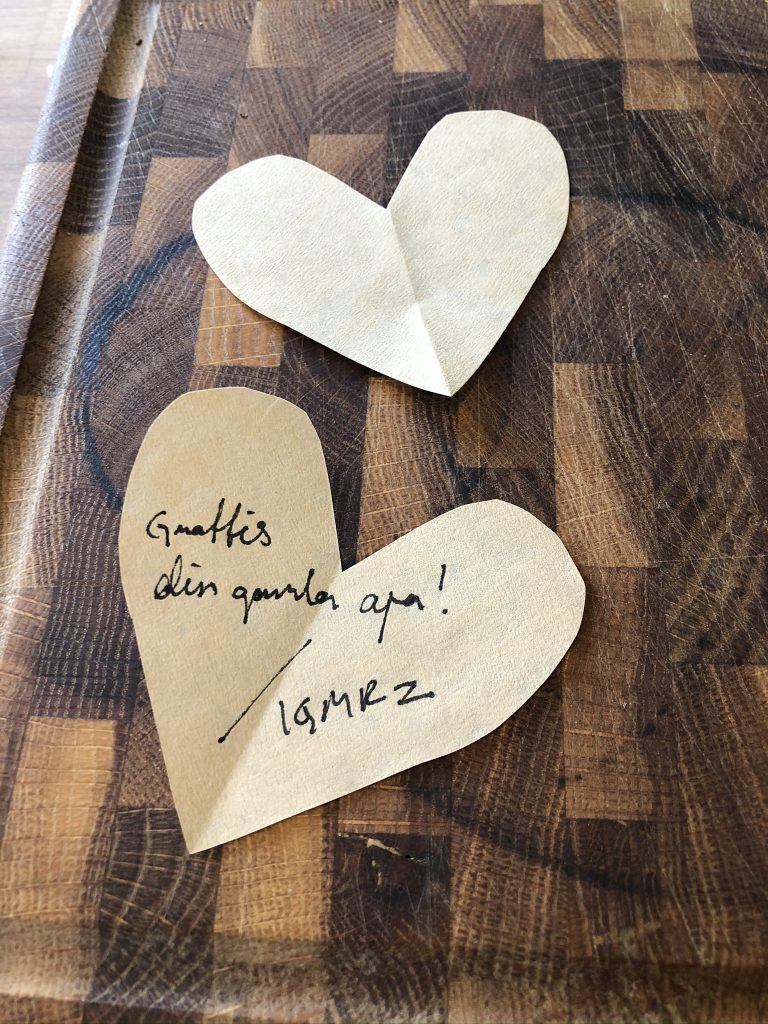 Grattis
din gamla apa!
/IGMRZ